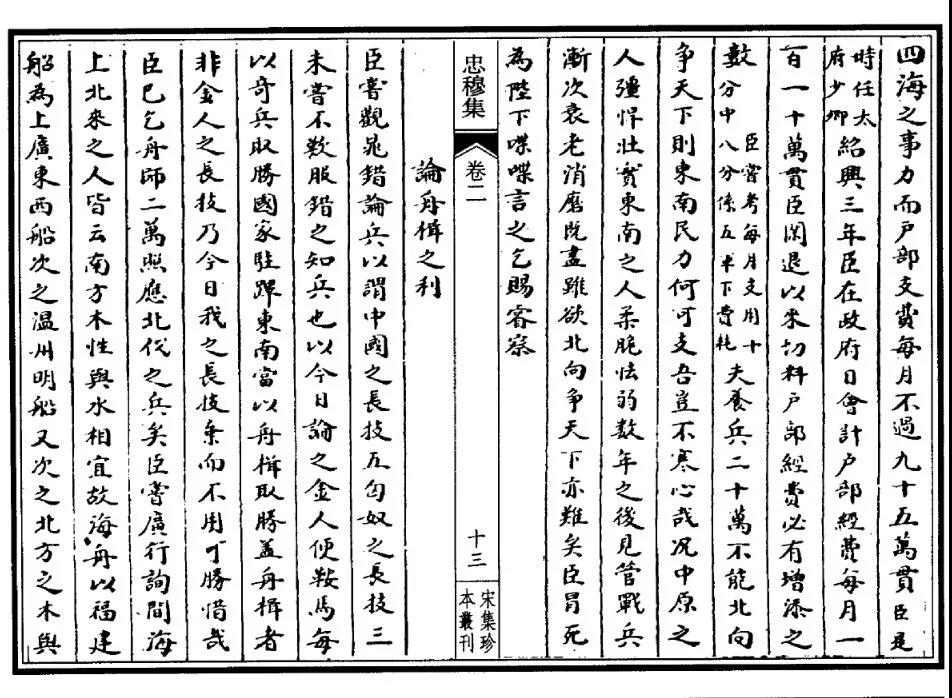 四海之事力而戶部支費每月不過九十五萬貫臣是
時任太
府少卿
紹興三年臣在政府日會計戶部經費每月一
百一十萬貫臣閑退以來切料戶部經費必有增添之
數
臣嘗考每月支用十
分中八分係五軍下費耗
夫養兵二十萬不能北向
爭天下則東南民力何可支吾豈不寒心哉況中原之
人彊悍壯實東南之人柔脆怯弱數年之後見管戰兵
漸次衰老消磨既盡雖欲北向爭天下亦難矣臣冒死
為陛下喋喋言之乞賜睿察
忠穆集
卷二
十三
宋集珍
本叢刊
論舟楫之利
臣嘗觀晁錯論兵以謂中國之長技五匈奴之長技三
未嘗不歎服錯之知兵也以今日論之金人便鞍馬每
以奇兵取勝國家駐蹕東南當以舟楫取勝蓋舟楫者
非金人之長技乃今日我之長技棄而不用可勝惜哉
臣已乞舟師二萬照應北伐之兵矣臣嘗廣行詢問海
上北來之人皆云南方木性與水相宜故海舟以福建
船為上廣東西船次之溫州明船又次之北方之木與